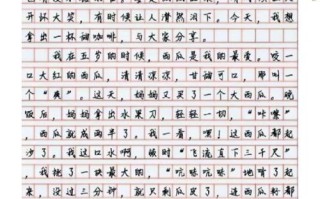 开怀大笑，有时候让人潸然泪下。今天，我想
拿出一杯甜咖啡，与大家分享。
我在五岁的时候，西瓜是我的最爱。咬一
口大红的西瓜，清清凉凉，甘甜可口，那叫一
个“爽”。这天，妈妈又买了一个大西瓜。晚
饭后，妈妈拿出水果刀，轻轻一切，“咔嚓”
，西瓜就成两半了。我一看，嘿！这西瓜都起
沙了。我这口水啊，顿时“飞流直下三千尺”
，我挑了一块最大的，“吭哧吭哧”地啃了起
来，没过三分钟，就只剩瓜皮了，连西瓜籽都